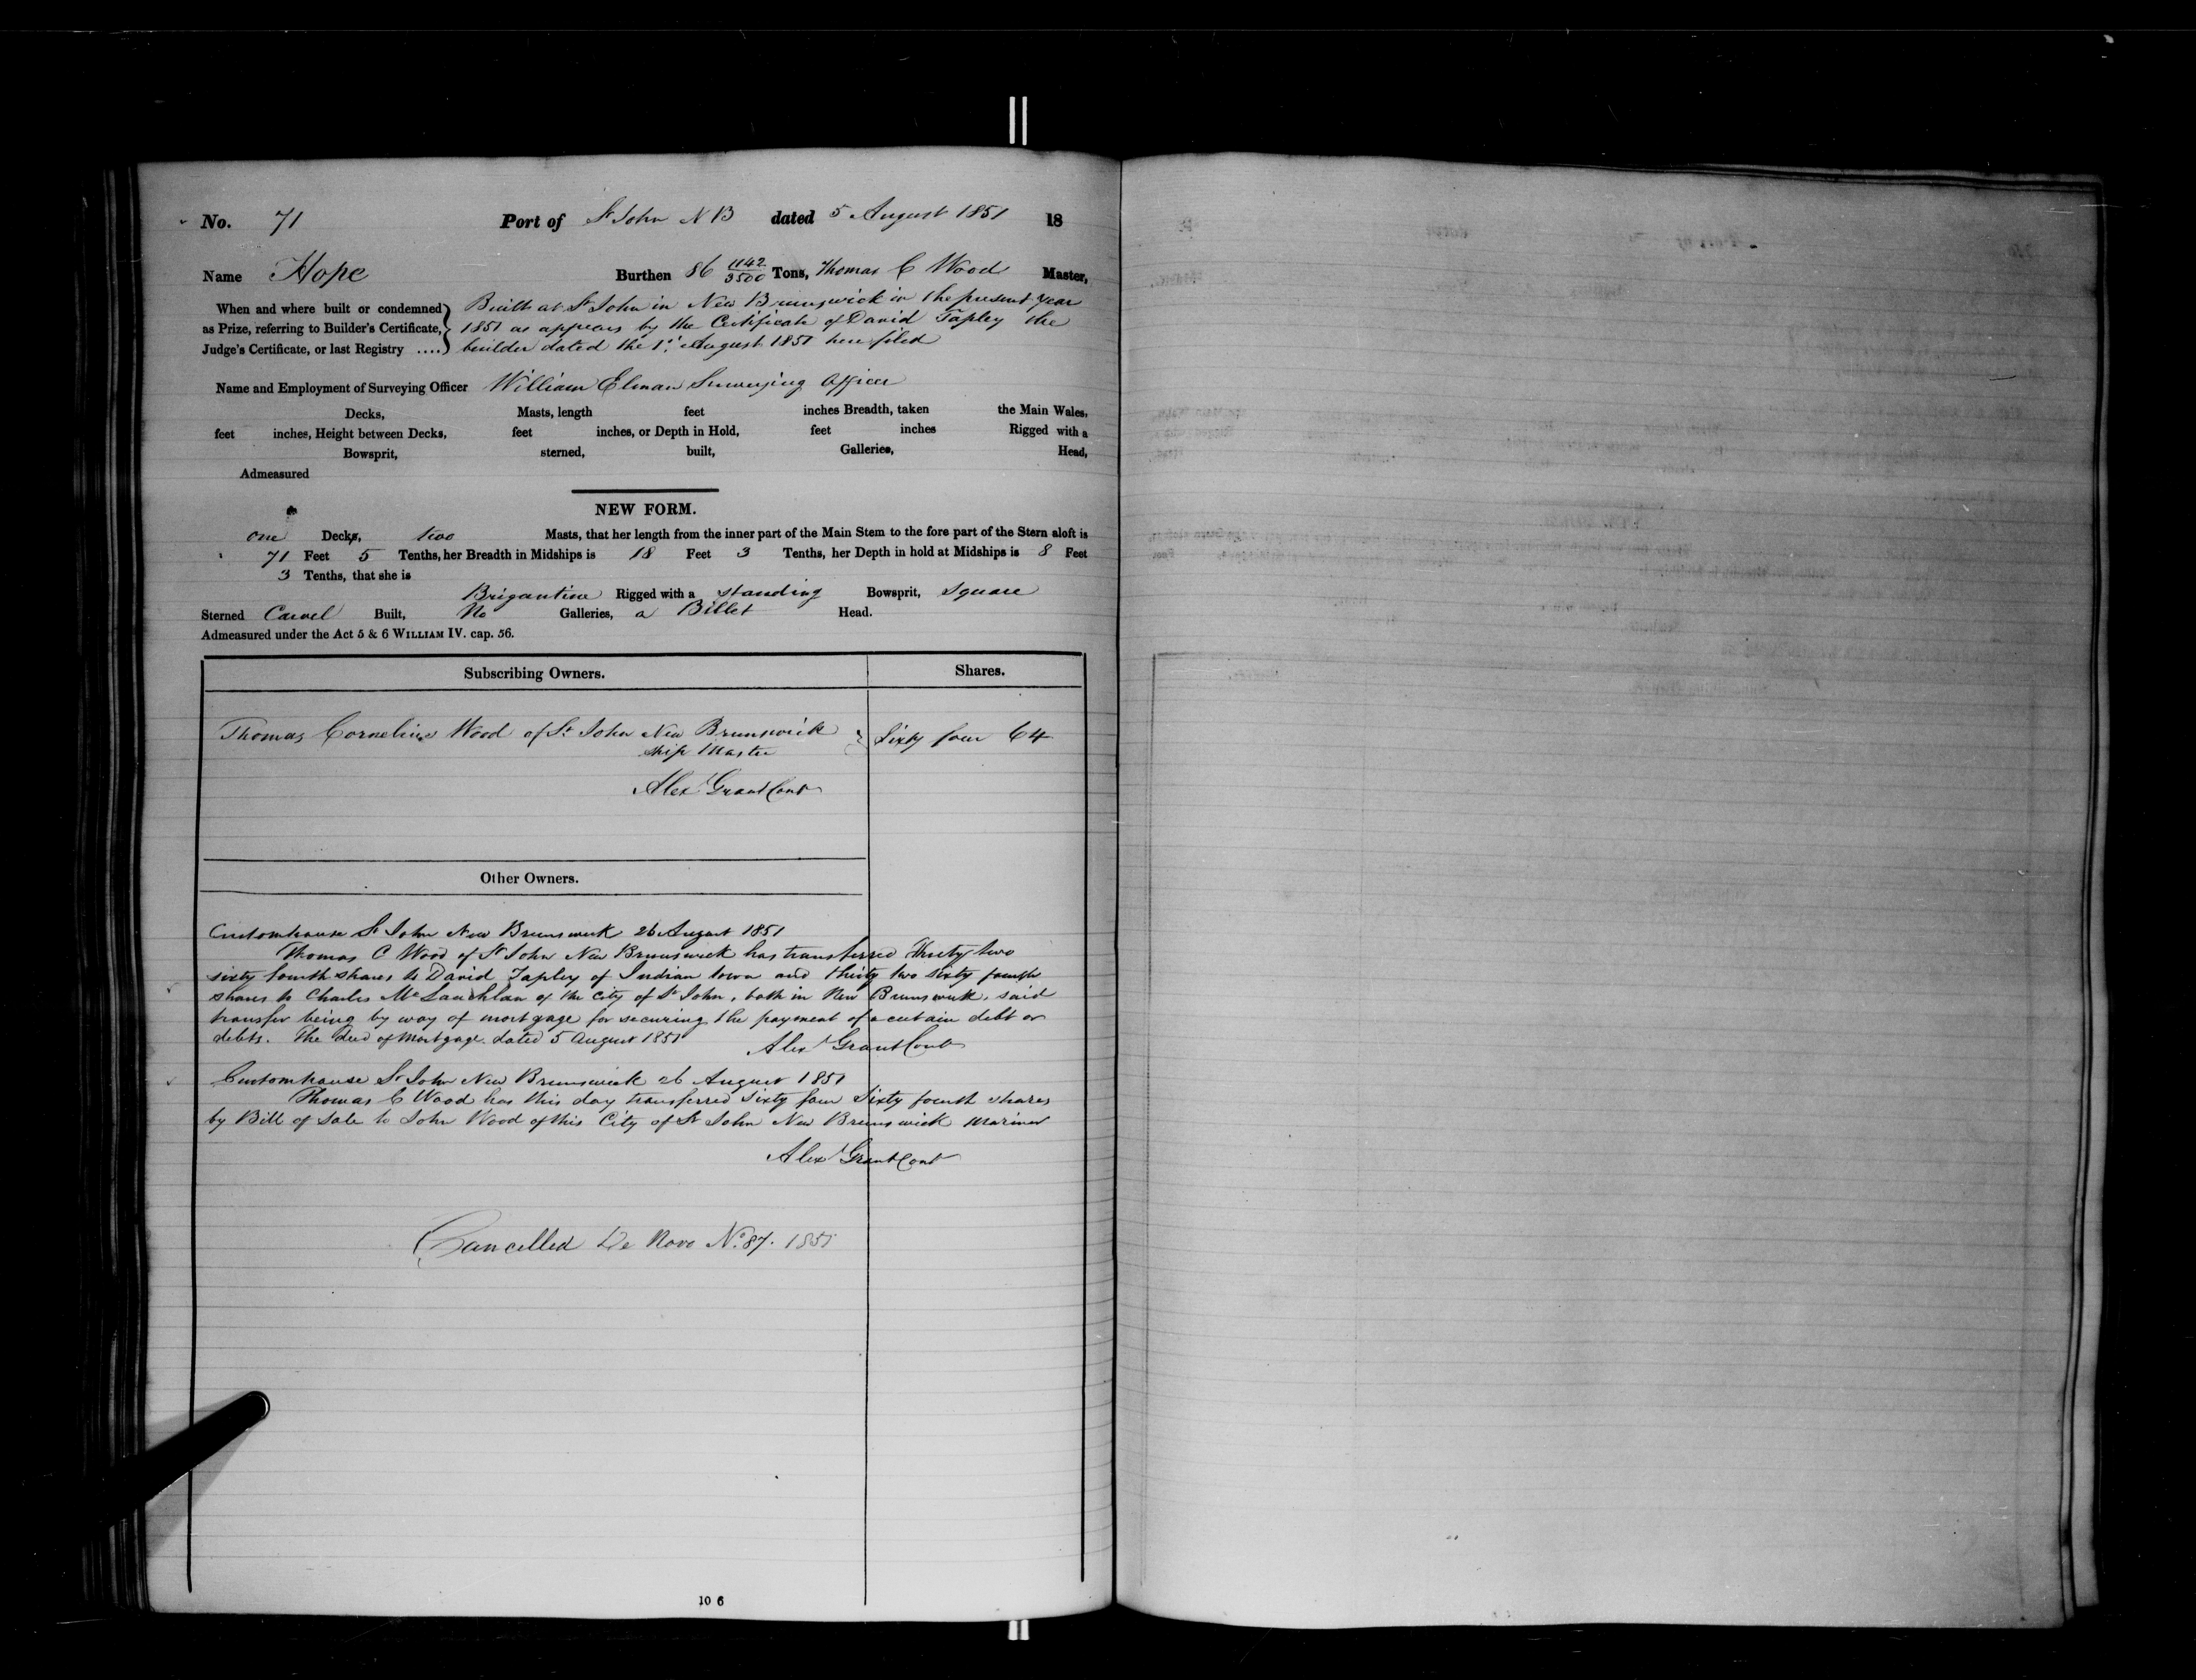 No. 71 Port of St John N B dated 5 August 1851 18
Name Hope Burthen 86 1142/3500 Tons, Thomas C Wood Master,
When and where built or condemned as Prize, referring to Builder's Certificate, Judge's Certificate, or last Registry ....}
Built at St John in New Brunswick in the present year
1851 as appears by the Certificate of David Tapley the
builder dated the 1st August 1851 here filed
Name and Employment of Surveying Officer William Elman Surveying Officer
Decks, Masts, length feet inches Breadth, taken the Main Wales,
feet inches, Height between Decks, feet inches, or Depth in Hold, feet inches Rigged with a
Bowsprit, sterned, built, Galleries, Head,
Admeasured
NEW FORM.
one Decks, two Masts, that her length from the inner part of the Main Stem to the fore part of the Stern aloft is
71 Feet 5 Tenths, her Breadth in Midships is 18 Feet 3 Tenths, her Depth in hold at Midships is 8 Feet
3 Tenths, that she is
Brigantine Rigged with a standing Bowsprit, Square
Sterned Carvel Built, No Galleries, a Billet Head.
Admeasured under the Act 5 & 6 WILLIAM IV. cap. 56.
Subscribing Owners. Shares.
Thomas Cornelius Wood of St John New Brunswick } Sixty four 64
Ship Master
Alex Grant Cont
Other Owners.
Customhouse St John New Brunswick 26 August 1851
Thomas C Wood of St John New Brunswick has transferred Thirty two
sixty fourth shares to David Tapley of Indian town and thirty two sixty fourth
shares to Charles McLauchlan of the City of St John, both in New Brunswick, said
transfer being by way of mortgage for securing the payment of a certain debt or
debts. The Deed of Mortgage dated 5 August 1851
Alex Grant Cont
Customhouse St John New Brunswick 26 August 1851
Thomas C Wood has this day transferred Sixty four Sixty fourth shares
by Bill of Sale to John Wood of this City of St John New Brunswick Mariner
Alex Grant Cont
Cancelled De Novo No. 87. 1851
10 6